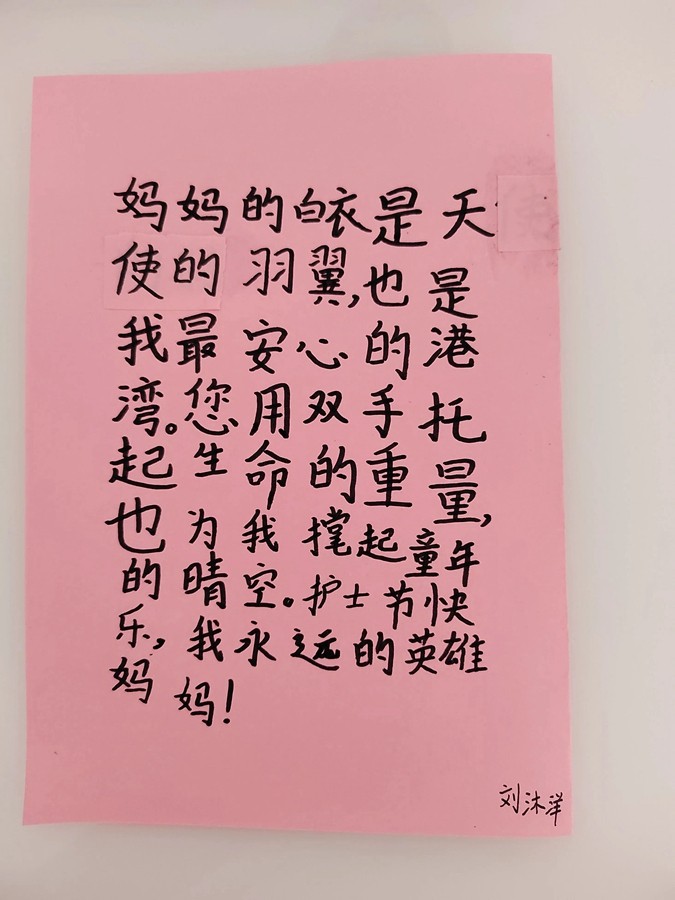 妈妈的白衣是天
使的羽翼,也是
我最安心的港
湾。您用双手托
起生命的重量,
也为我撑起童年
的晴空。护士节快
乐,我永远的英雄
妈妈!
刘沐洋